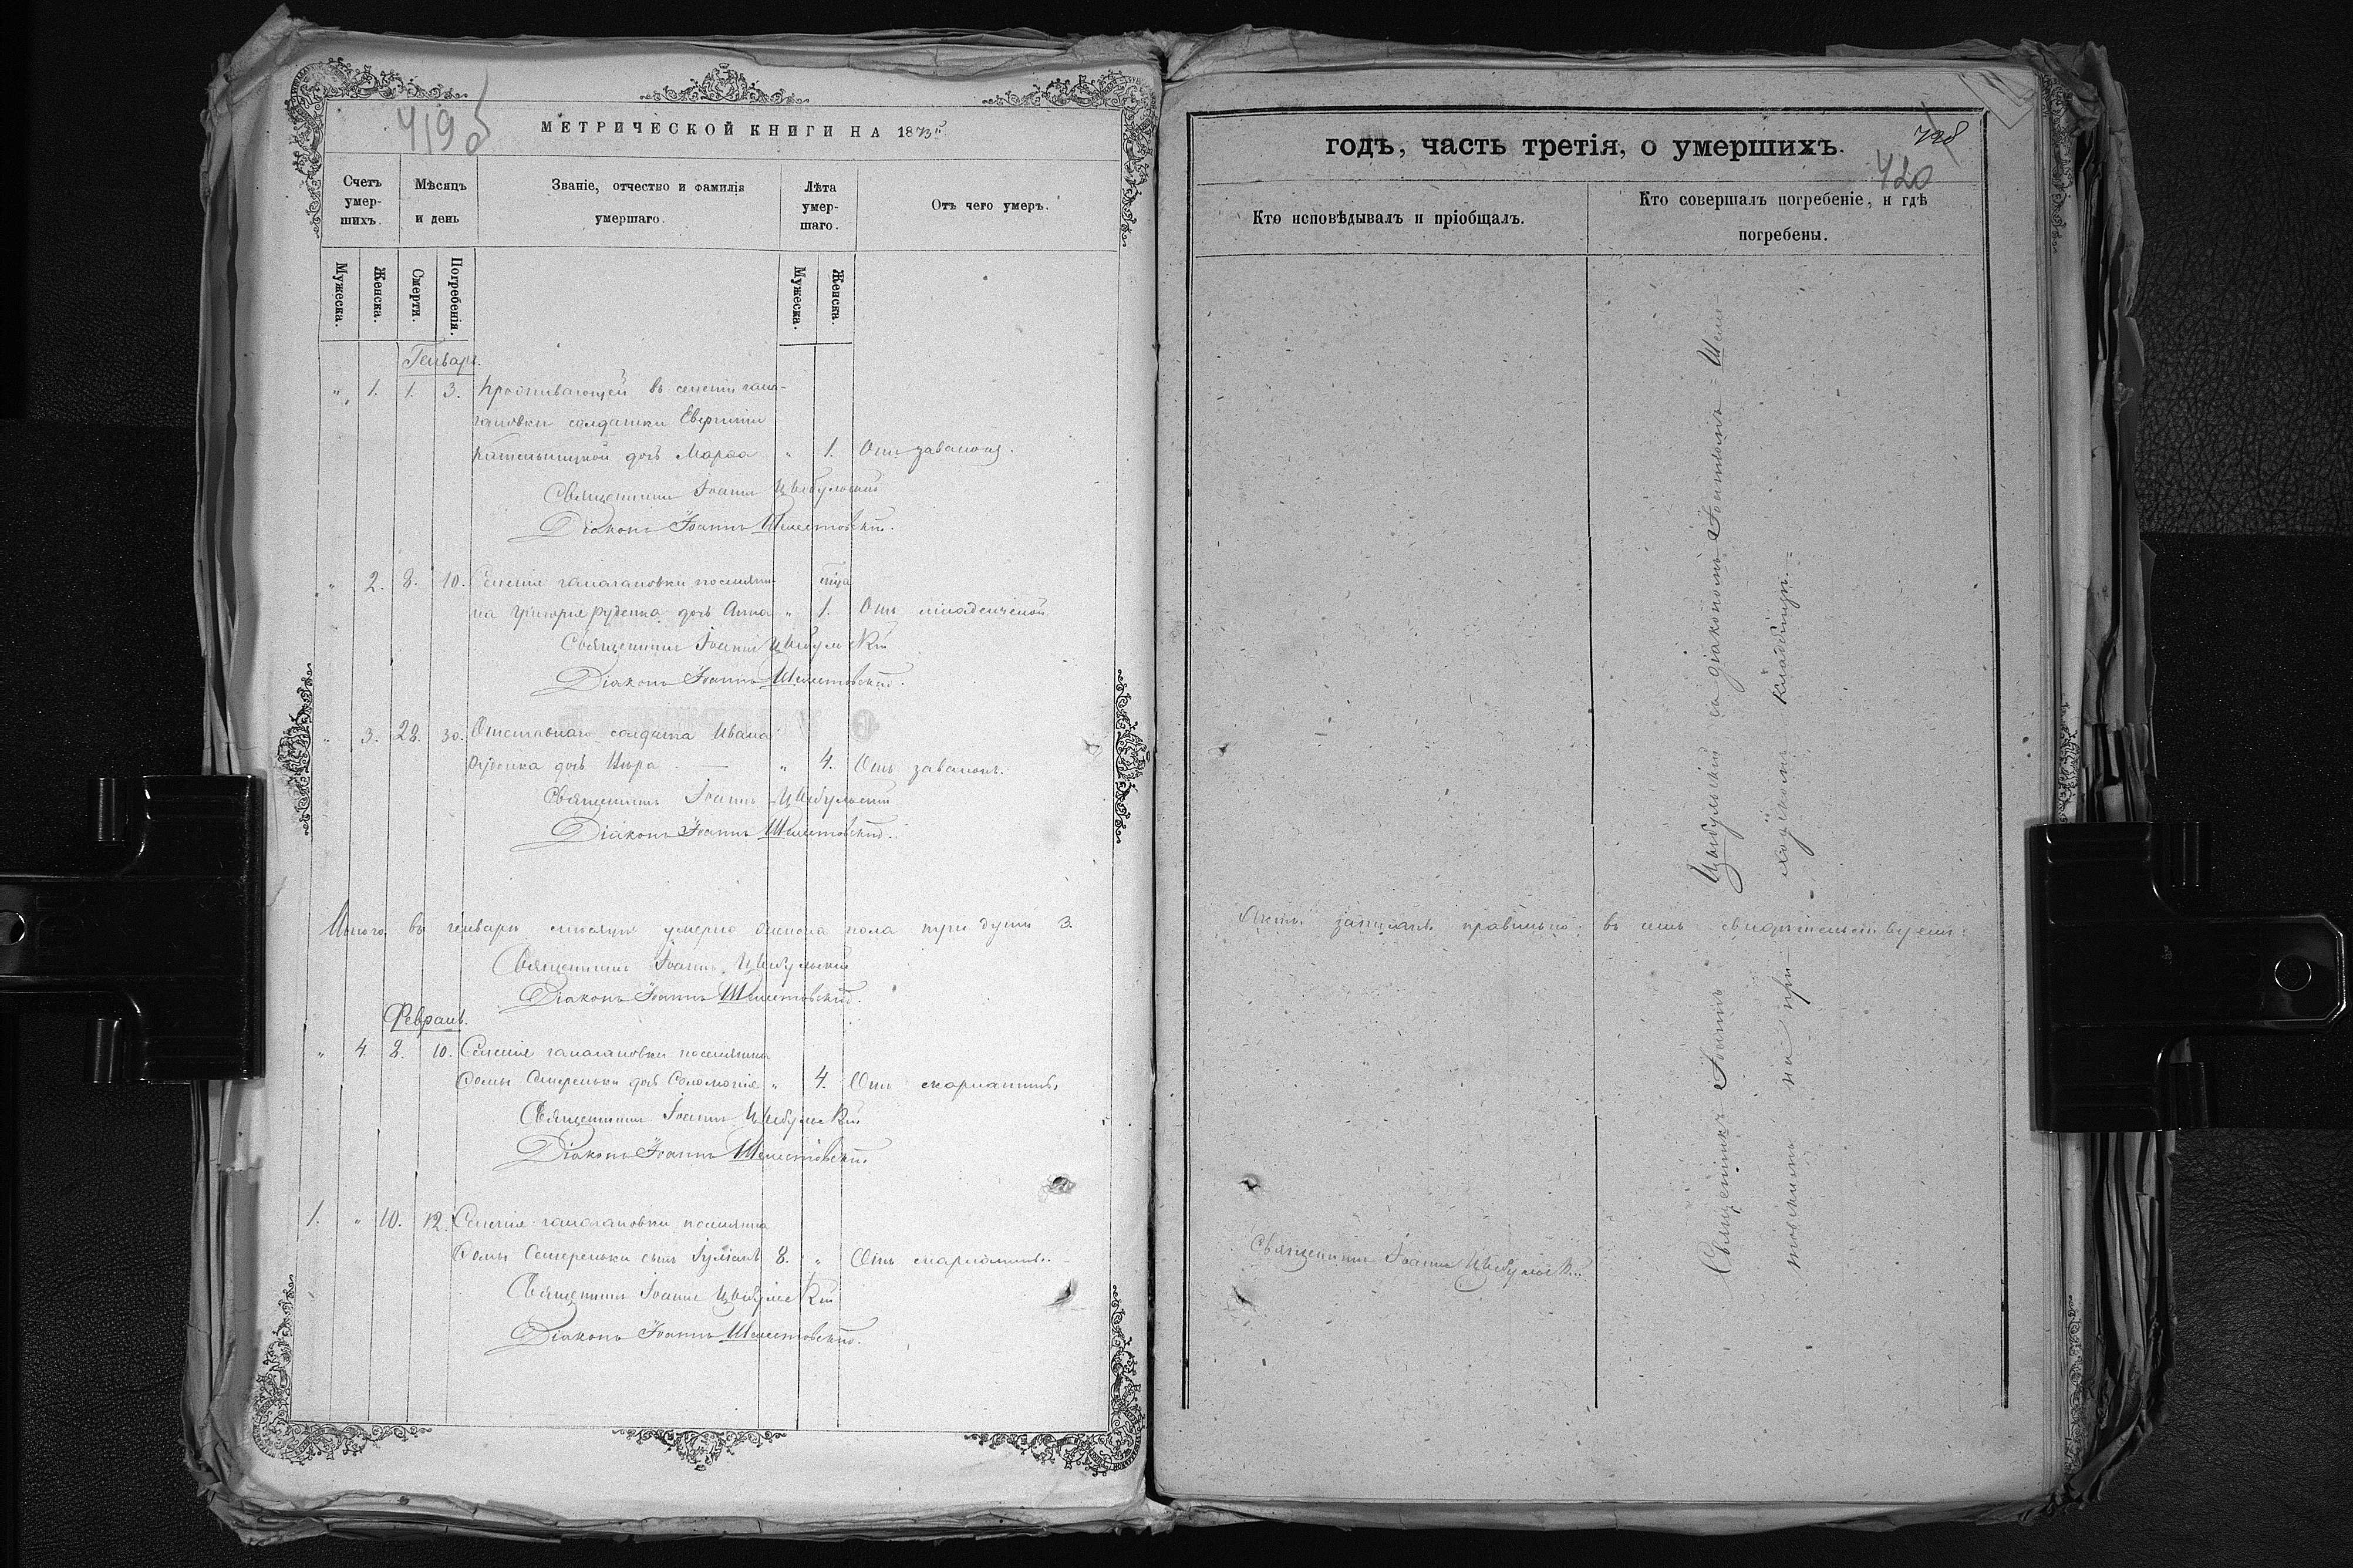 419б
МЕТРИЧЕСКОЙ КНИГИ НА 1873й
Счетъ умершихъ.
Мѣсяцъ и день
Званіе, отчество и фамилія умершаго.
Лѣта умершаго.
Отъ чего умеръ.
Мужеска.
Женска.
Смерти.
Погребенія.
Мужеска.
Женска.
Генварь.
„ 1. 1. 3. Проживающей въ селеніи гала-
гановки солдатки Евгеніи
дочь Марѳа „ 1. Отъ
Священникъ Іоаннъ Цыбульскій
Діаконъ Іоаннъ Шелестовскій.
„ 2. 8. 10. Селенія галагановки поселяни-
на Григорія Руденка дочь Анна „ 1. Отъ младенческой
Священникъ Іоаннъ Цыбульскій
Діаконъ Іоаннъ Шелестовскій.
„ 3. 28. 30. Отставнаго солдата Ивана
дочь „ 4. Отъ
Священникъ Іоаннъ Цыбульскій
Діаконъ Іоаннъ Шелестовскій.
Итого въ генварѣ мѣсяцѣ умерло женска пола три души 3.
Священникъ Іоаннъ Цыбульскій
Діаконъ Іоаннъ Шелестовскій.
Февраль.
„ 4. 8. 10. Селенія галагановки поселянина
Ѳомы дочь Соломонія „ 4. Отъ скарлатины.
Священникъ Іоаннъ Цыбульскій
Діаконъ Іоаннъ Шелестовскій.
1. „ 10. 12. Селенія галагановки поселянина
Ѳомы сынъ 8. „ Отъ скарлатины.
Священникъ Іоаннъ Цыбульскій
Діаконъ Іоаннъ Шелестовскій.
годѣ, часть третія, о умершихъ.
420
Кто исповѣдывалъ и пріобщалъ.
Кто совершалъ погребеніе, и гдѣ погребены.
Священникъ Іоаннъ Цыбульскій съ діакономъ Іоанномъ Шелес-
товскимъ на при- ходскомъ кладбищѣ.
Актъ записанъ правильно въ чемъ свидѣтельствуемъ:
Священникъ Іоаннъ Цыбульскій